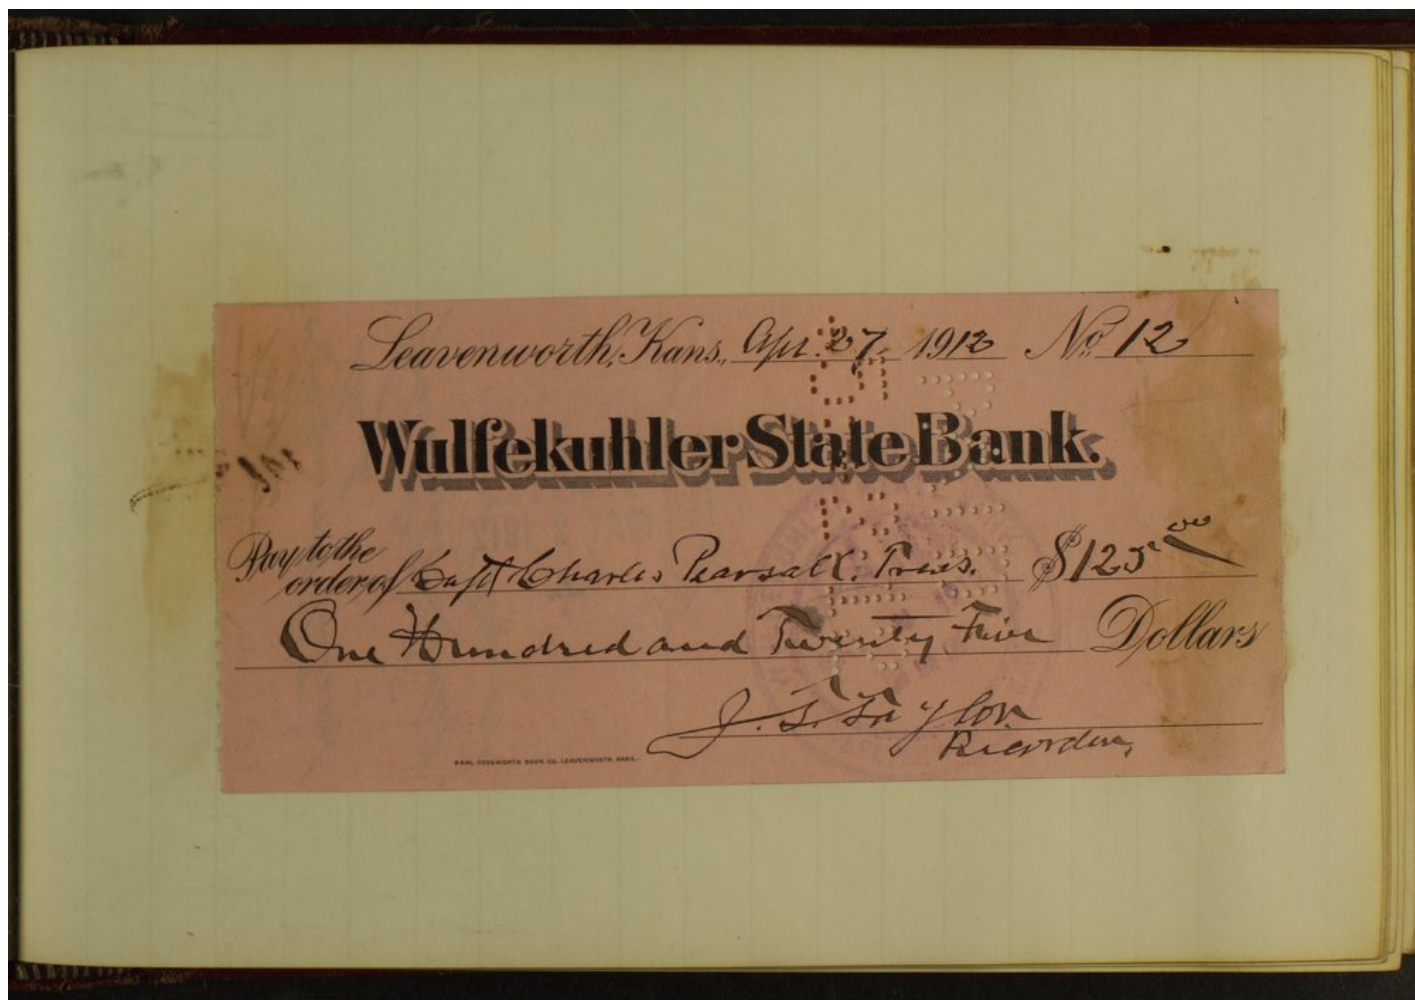 Leavenworth, Kans., Apr. 27 1912 No. 12
Wulfekuhler State Bank.
Pay to the
order of Capt Charles Pearsall. Pres. $125.00
One Hundred and Twenty Five Dollars
J. S. Taylor
Recorder,
CO. LEAVENWORTH, KANS.